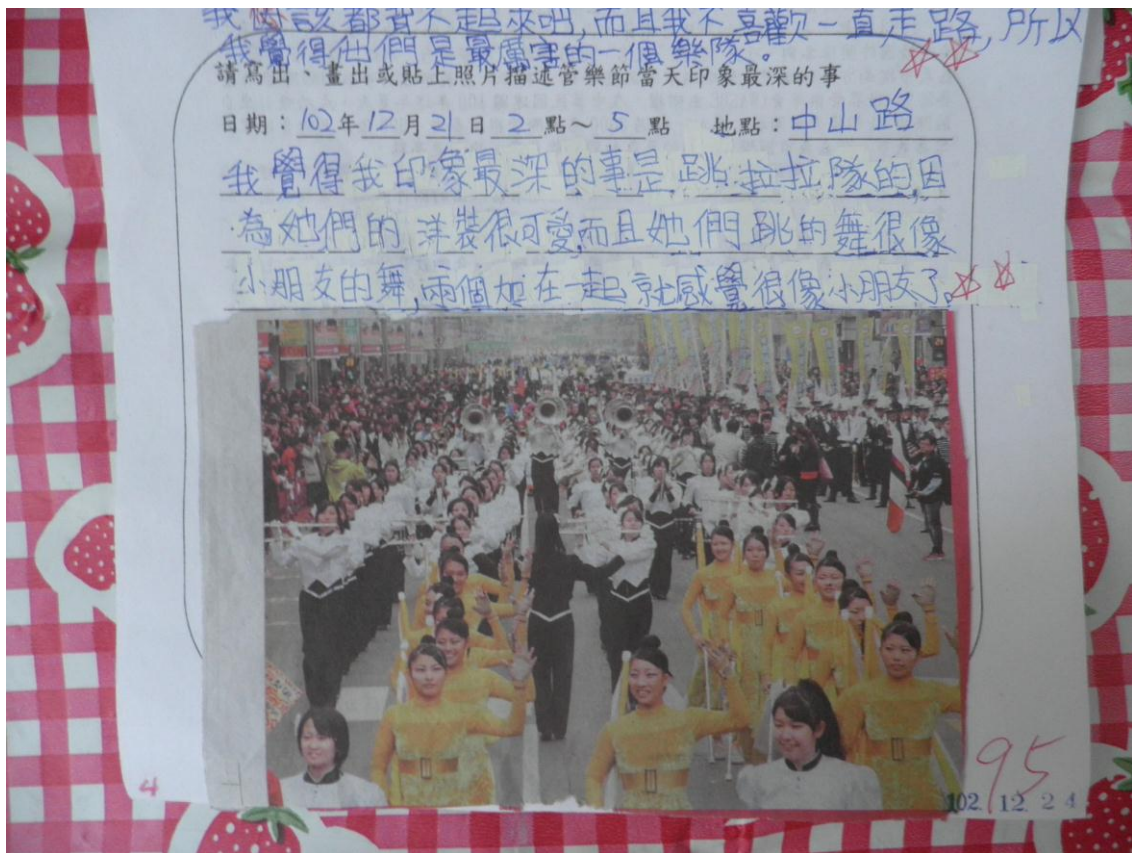 我應該都背不起來吧,而且我不喜歡一直走路,所以
我覺得他們是最厲害的一個樂隊。
請寫出、畫出或貼上照片描述管樂節當天印象最深的事
日期:102年12月21日2點~5點 地點:中山路
我覺得我印象最深的事是跳拉拉隊的因
為她們的洋裝很可愛,而且她們跳的舞很像
小朋友的舞,兩個加在一起就感覺很像小朋友了。
4
95
102.12.24